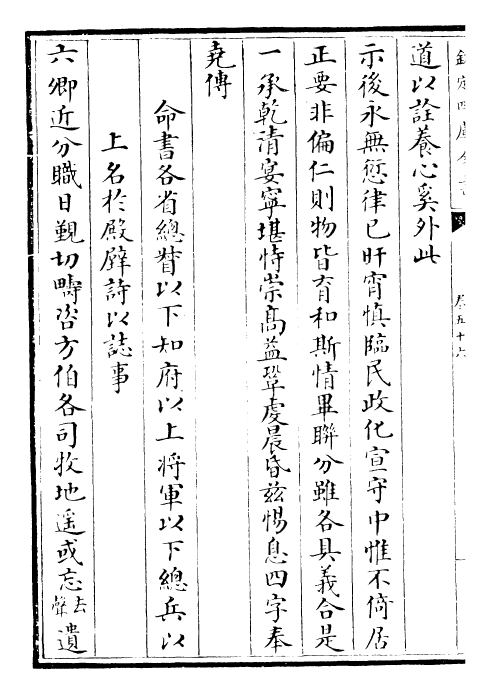 欽定四庫全書
卷五十六
道以詮養心奚外此
示後永無愆律已旰宵慎臨民政化宣守中惟不倚居
正要非偏仁則物皆育和斯情畢聯分雖各具義合是
一承乾清宴寧堪恃崇高益鞏虔晨昏兹惕息四字奉
堯傳
命書各省總督以下知府以上将軍以下總兵以
上名於殿壁詩以誌事
六卿近分職日覲切疇咨方伯各司牧地遥或忘去聲遺